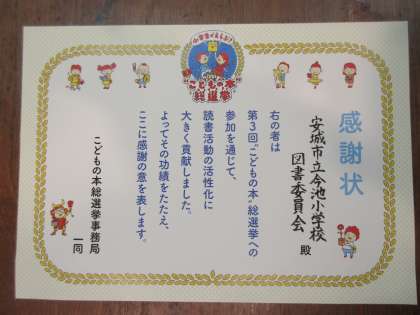 小学生がえらぶ!
"こどもの本"
総選挙
感謝状
安城市立今池小学校
図書委員会 殿
右の者は
第3回"こどもの本"総選挙への
参加を通じて、
読書活動の活性化に
大きく貢献しました。
よってその功績をたたえ、
ここに感謝の意を表します。
こどもの本総選挙事務局
一同